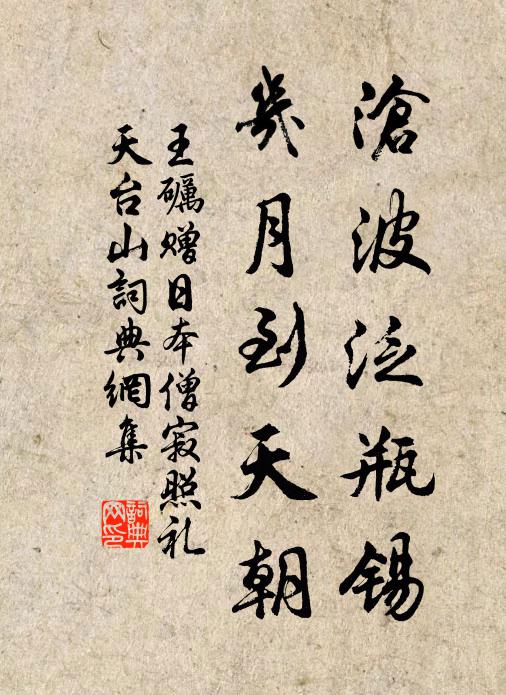 滄波泛瓶錫
幾月到天朝
王礪贈日本僧寂照礼
天台山詞典網集
詞典
网印